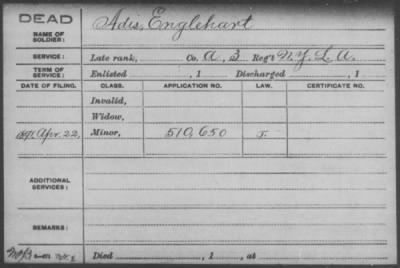 DEAD
NAME OF SOLDIER: Adis, Englehart
SERVICE: Late rank, Co. A, 3 Reg't N.Y. L. A.
TERM OF SERVICE: Enlisted , 1 Discharged , 1
DATE OF FILING. CLASS. APPLICATION NO. LAW. CERTIFICATE NO.
Invalid,
Widow,
1891 Apr. 22, Minor, 510,650
ADDITIONAL SERVICES:
REMARKS:
Died , 1 , at